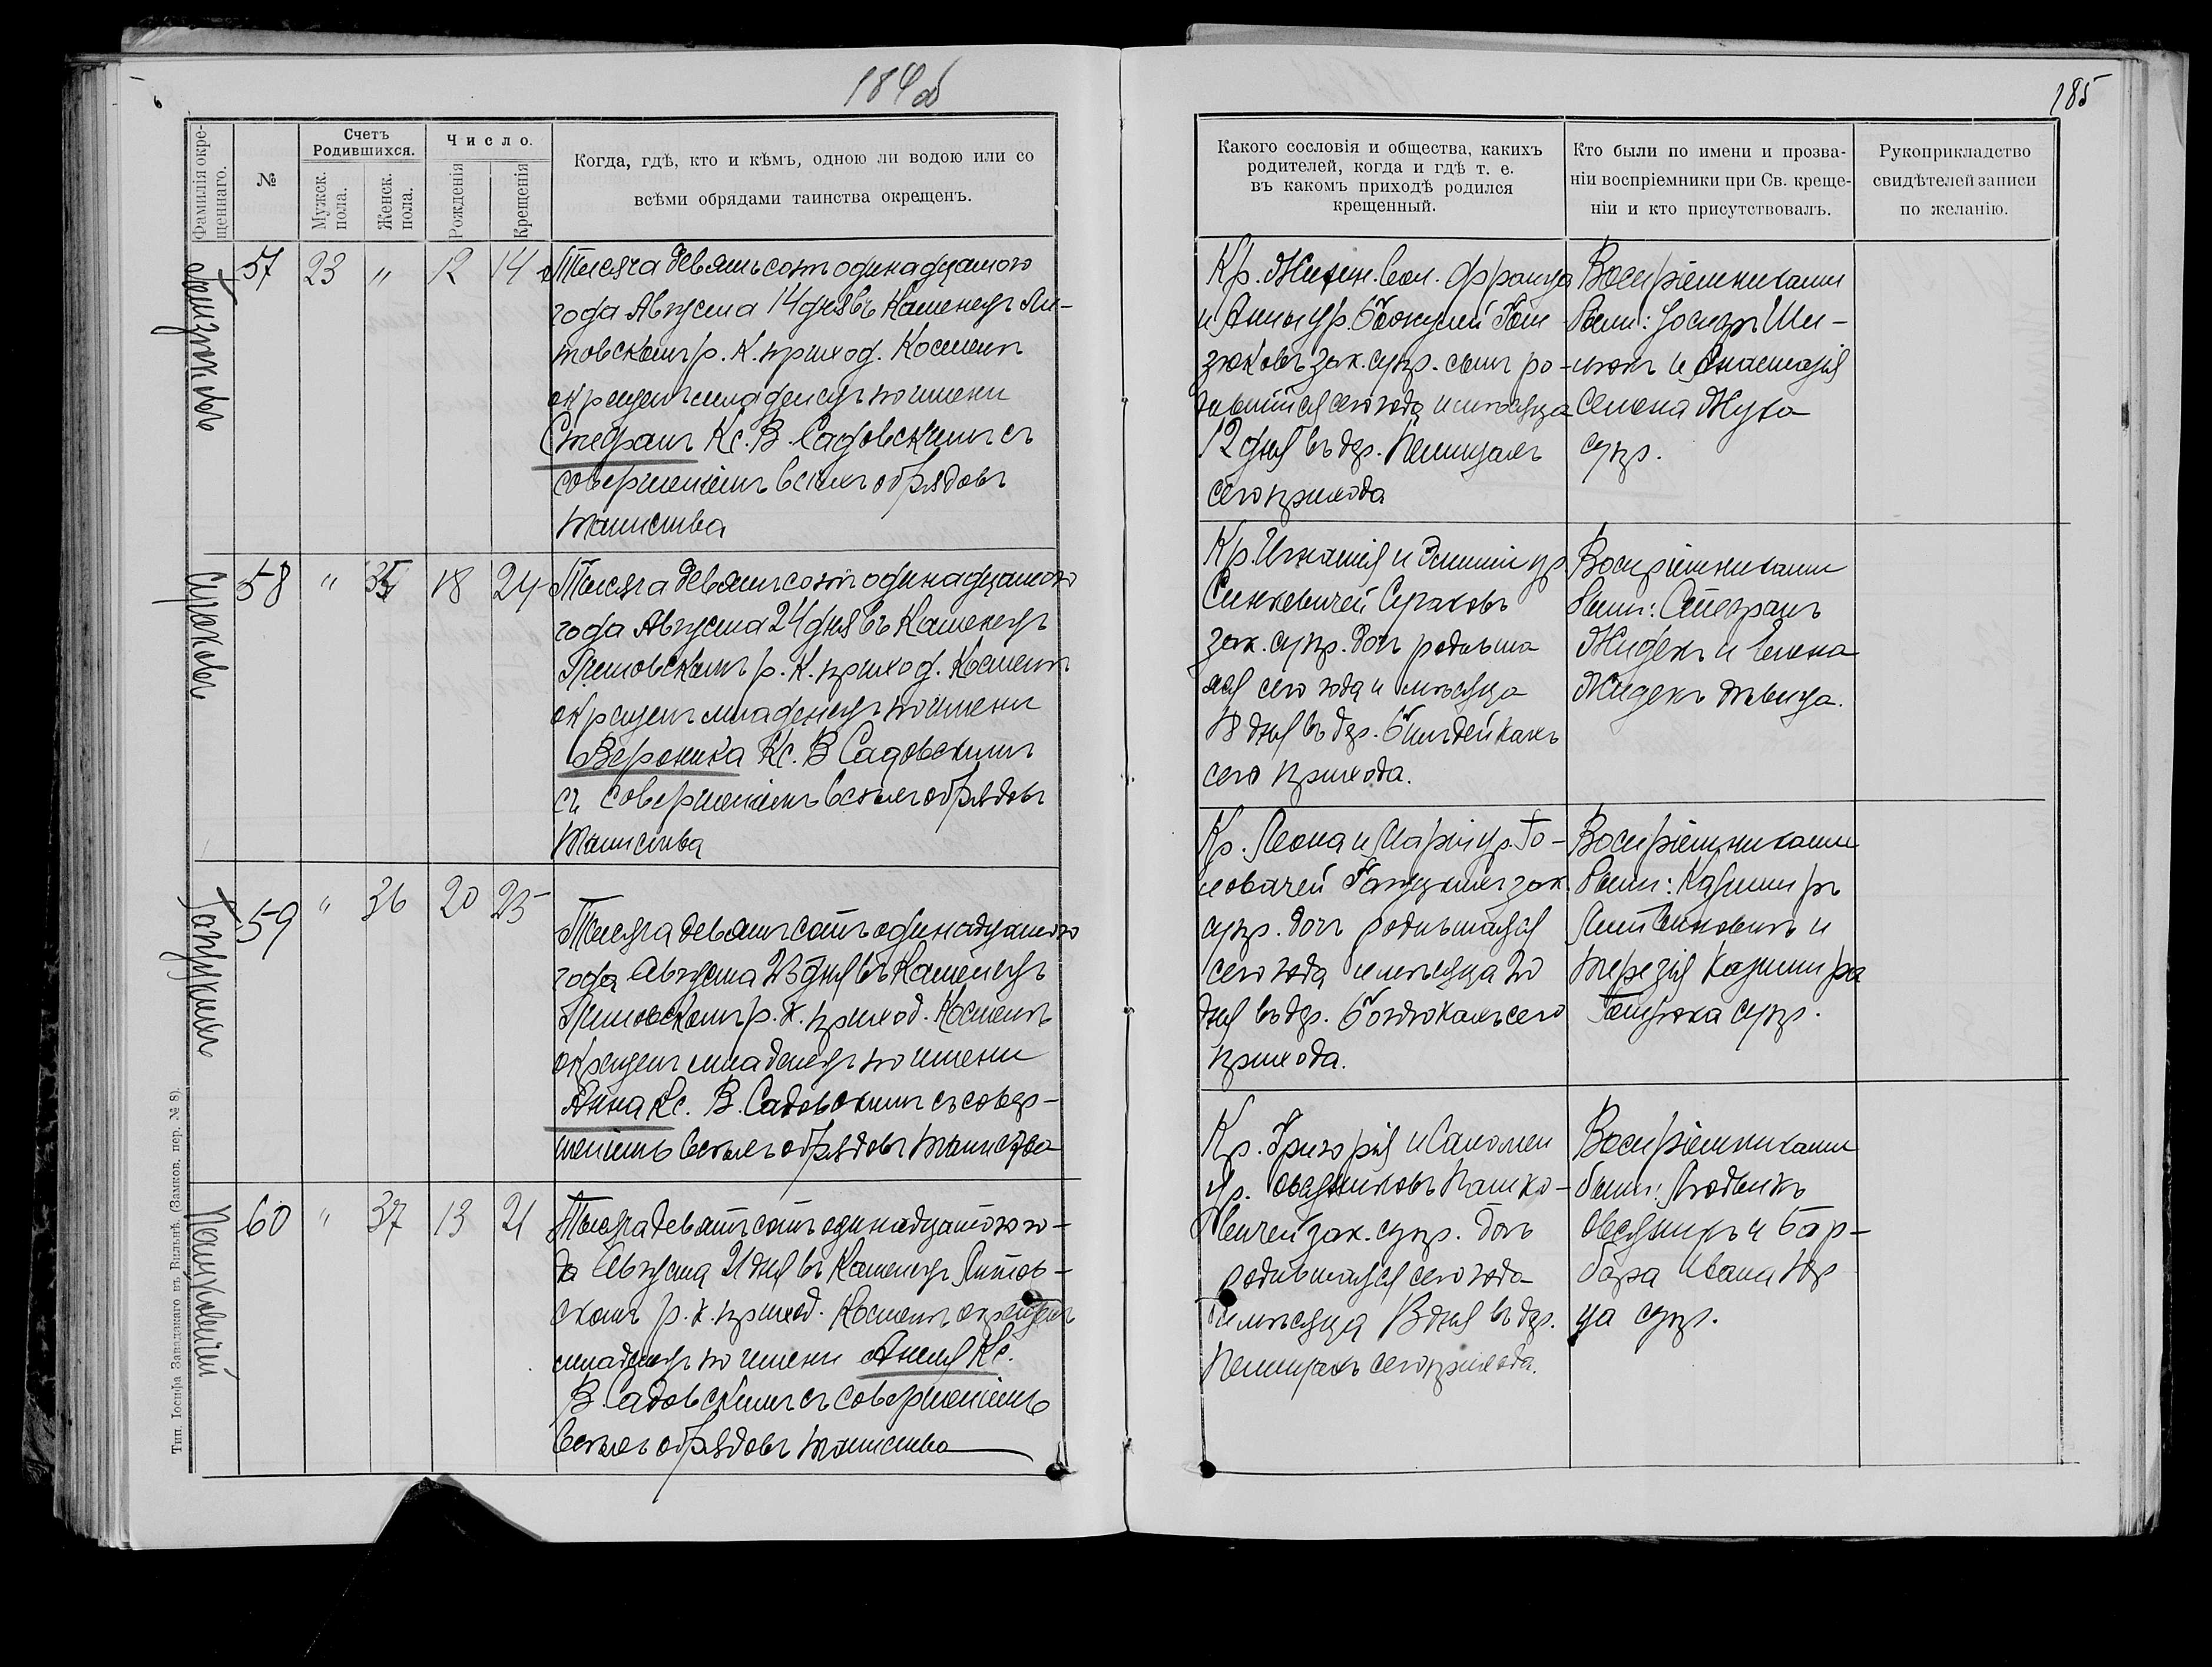 184 об
185
Фамилія окре-
щеннаго.
№
Счетъ
Родившихся.
Мужск.
пола.
Женск.
пола.
Число.
Рожденія
Крещенія
Когда, гдѣ, кто и кѣмъ, одною ли водою или со
всѣми обрядами таинства окрещенъ.
57 23 " 12 14
Тысяча девятьсотъ одинадцатого
года Августа 14 дня въ Каменецъ Ли-
товскомъ р. К. приход. Костелѣ
окрещенъ младенецъ по имени
Стефанъ Кс. В. Садовскимъ съ
совершеніемъ всѣхъ обрядовъ
таинства
Сураковъ
58 " 35 18 24
Тысяча девятьсотъ одинадцатого
года Августа 24 дня въ Каменецъ
Литовскомъ р. К. приход. Костелѣ
окрещенъ младенецъ по имени
Вероника Кс. В Садовскимъ
съ совершеніемъ всѣхъ обрядовъ
таинства
59 " 36 20 23
Тысяча девятьсотъ одинадцатого
года Августа 23 дня въ Каменецъ
Литовскомъ р. К. приход. Костелѣ
окрещенъ младенецъ по имени
Анна Кс. В. Садовскимъ съ совер-
шеніемъ всѣхъ обрядовъ таинства
Пашкевичей
60 " 37 13 21
Тысяча девятьсотъ одинадцатого го-
да Августа 21 дня въ Каменецъ Литов-
скомъ р. К. приход. Костелѣ окрещенъ
младенецъ по имени Анеля Кс.
В. Садовскимъ съ совершеніемъ
всѣхъ обрядовъ таинства
Тип. Іосифа Завадзкаго въ Вильнѣ. (Замков. пер. № 8).
Какого сословія и общества, какихъ
родителей, когда и гдѣ т. е.
въ какомъ приходѣ родился
крещенный.
Кр. вол. Франца
и Анны ур.
зак. супр. сынъ ро-
дившійся сего года и мѣсяца
12 дня въ дер. Пелищахъ
сего прихода
Кр. Игнатія и Эмиліи ур
Синкевичей Сураковъ
зак. супр. дочь родивша
яся сего года и мѣсяца
18 дня въ дер.
сего прихода.
Кр. Леона и Маріи ур. Го-
ловачей зак.
супр. дочь родившаяся
сего года и мѣсяца 20
дня въ дер. сего
прихода.
Кр. Григорія и Саломеи
ур. Овсяниковъ Пашке-
вичей зак. супр. дочь
родившаяся сего года
и мѣсяца 13 дня въ дер.
Пелищахъ сего прихода.
Кто были по имени и прозва-
ніи воспріемники при Св. креще-
ніи и кто присутствовалъ.
Воспріемниками
были: Іосифъ
и Анастазія
Семена Жука
супр.
Воспріемниками
были: Стефанъ
Жидекъ и Елена
Жидекъ дѣвица.
Воспріемниками
были: Казиміръ
Литвиновичъ и
Терезія Казиміра
супр.
Воспріемниками
были: Людвикъ
и Бар-
бара Ивана
супр.
Рукоприкладство
свидѣтелей записи
по желанію.